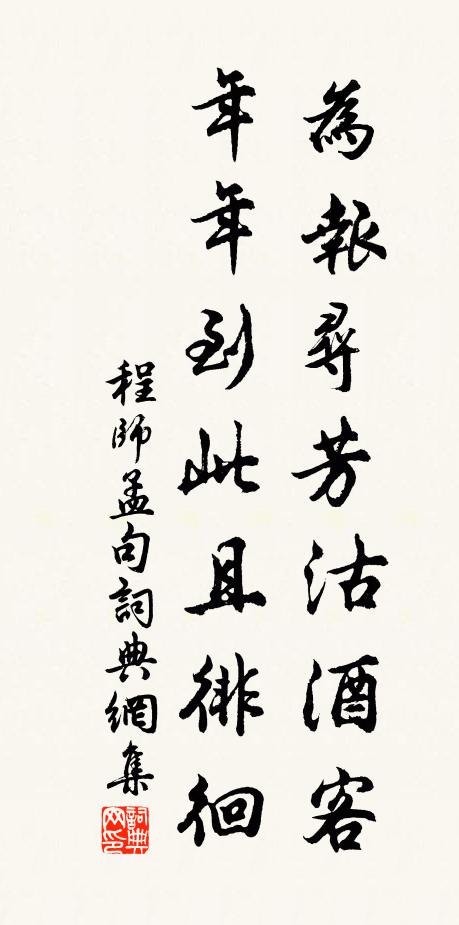 為報尋芳沽酒客
年年到此且徘徊
程師孟句詞典網集
詞典網印